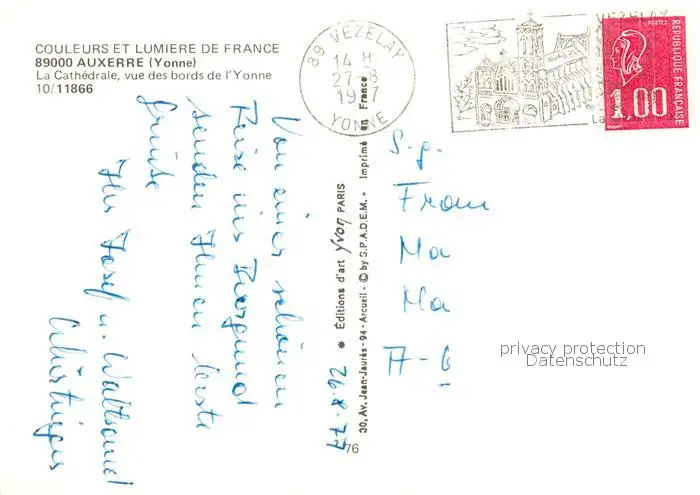 COULEURS ET LUMIERE DE FRANCE
89000 AUXERRE (Yonne)
La Cathédrale, vue des bords de l'Yonne
10/11866
89 VEZELAY
14 H
27-8
YONNE
VEZELAY
POSTES
REPUBLIQUE FRANÇAISE
1,00
26.8.77
Von einer schönen
Reise ins Burgund
senden Ihnen beste
Grüsse
Ihr Josef u. Waltraud
* Éditions d'art Yvon PARIS
30, Av. Jean-Jaurès - 94 - Arcueil - © by S.P.A.D.E.M. - Imprimé en France
76
S.g.
Ma
Ma
A-6
privacy protection
Datenschutz